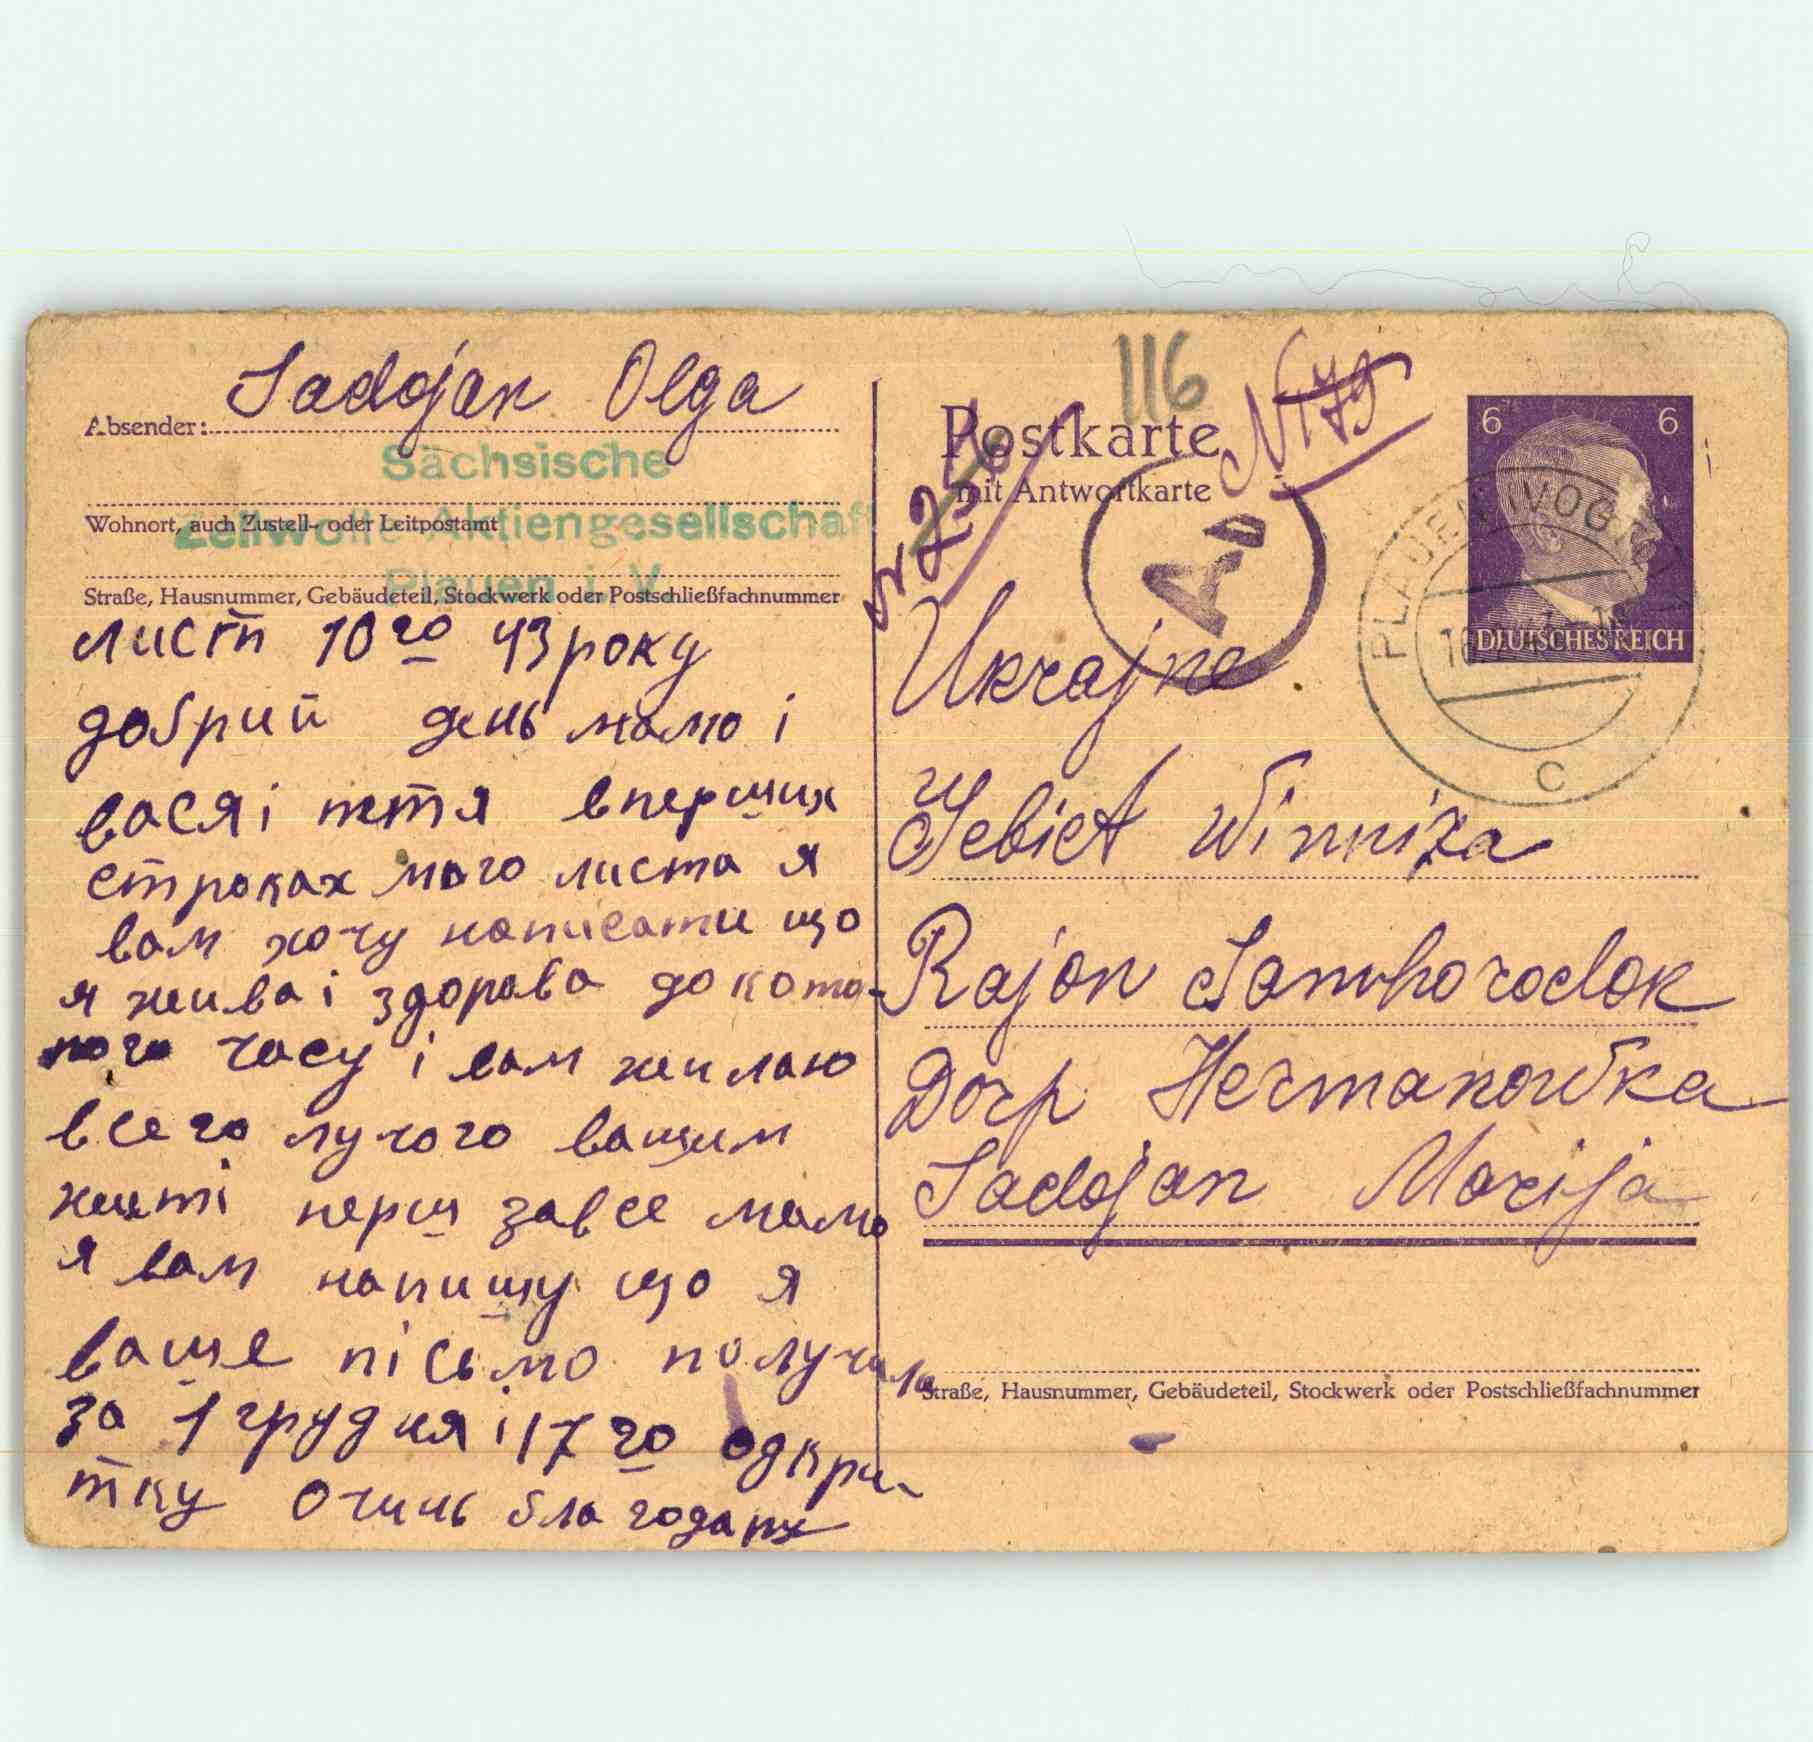 Sadojan Olga
Absender:
Sächsische
Zellwolle Aktiengesellschaf
Wohnort, auch Zustell- oder Leitpostamt
Plauen i. V.
Straße, Hausnummer, Gebäudeteil, Stockwerk oder Postschließfachnummer
лист 10го 43 року
добрий день мамо і
вася і тетя вперших
строках мого листа я
вам хочу написати що
я жива і здорова до
часу і вам жилаю
всего лучого вашим
житі перш завсе мамо
я вам напишу що я
ваше пісьмо получила
за 1 грудня і 17го одкри-
тку очинь благодару
116
N179
Postkarte
mit Antwortkarte
AD
6 6
DEUTSCHES REICH
PLAUEN (VOGTL)
c
Ukrajne
Gebiet Winniza
Rajon Samhorodok
Dorp Hermanowka
Sadojan Marija
Straße, Hausnummer, Gebäudeteil, Stockwerk oder Postschließfachnummer